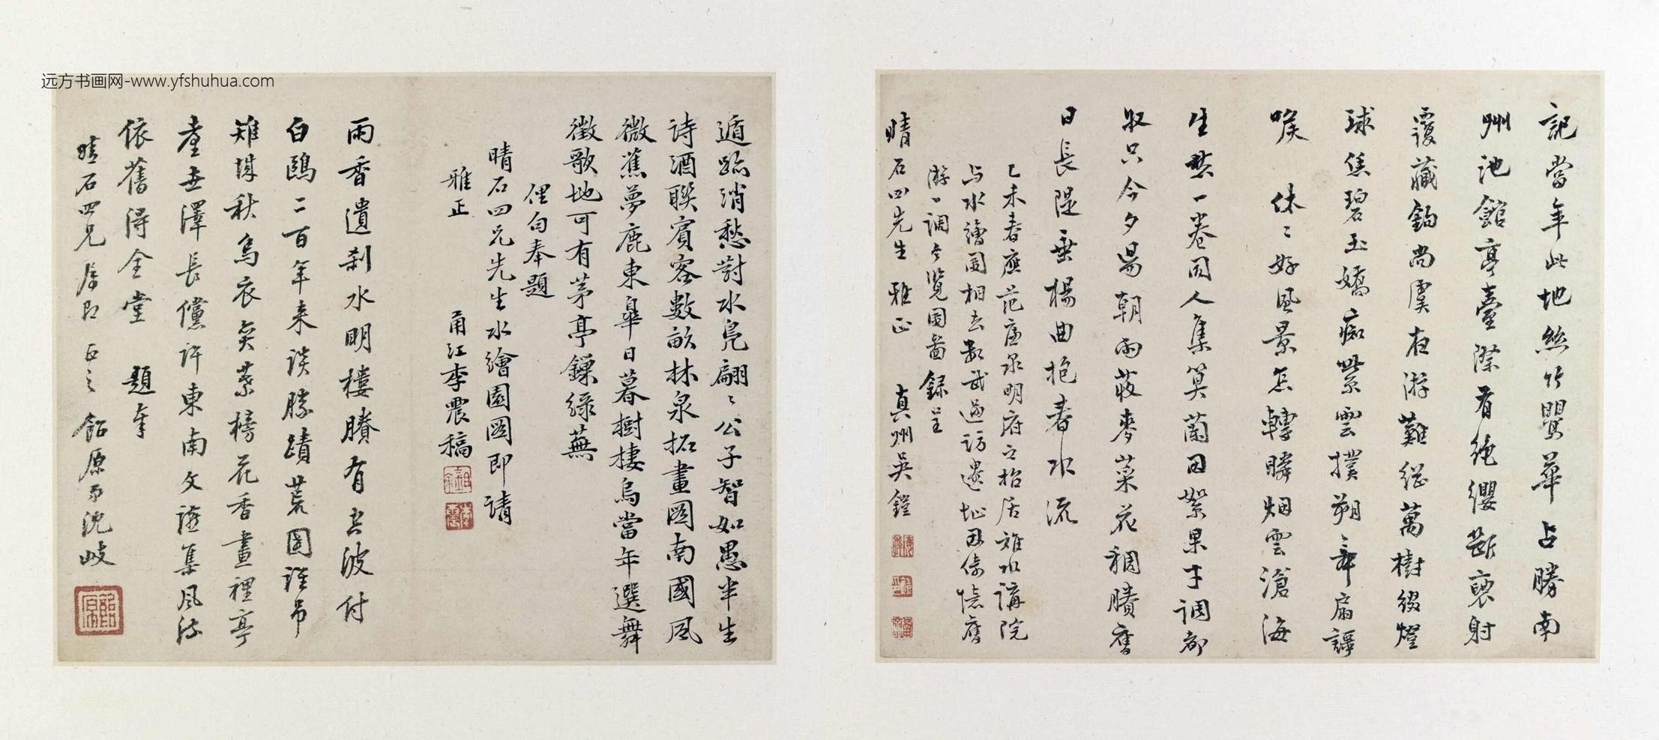 远方书画网-www.yfshuhua.com
記當年此地絲竹鸎華占勝南
州池館亭臺際看絶纓斷襃射
覆藏鉤尚虞夜游難繼萬樹綴燈
球焦碧玉嬌痴紫雲撲朔舞扇謳
喉 休二好風景怎轉瞬烟雲滄海
生愁一卷同人集算蘭因絮果才調都
收只今夕陽朝雨蔽麥菜花稠賸舊
日長隄垂楊曲抱春水流
己未春應范廉泉明府之招居雉水講院
与水繪園相去數武過訪遺址因倚憶舊
游一調今覽圖錄呈
晴石四先生雅正 真州吳鎧
遁跡消愁對水鳧翩二公子智如愚半生
詩酒聯賓客數畝林泉拓畫圖南國風
微蕉夢鹿東皐日暮樹棲烏當年選舞
徵歌地可有茅亭鏁綠蕪
俚句奉題
晴石四兄先生水繪園圖即請
雅正
甬江李震稿
雨香遺刹水明樓賸有書波付
白鷗二百年來談勝蹟荒園誰弔
雉城秋烏衣巷裏榜花香畫裡亭
臺世澤長儻許東南文讌集風流
依舊得全堂 題奉
晴石四兄屬即正之 飴原弟沈岐